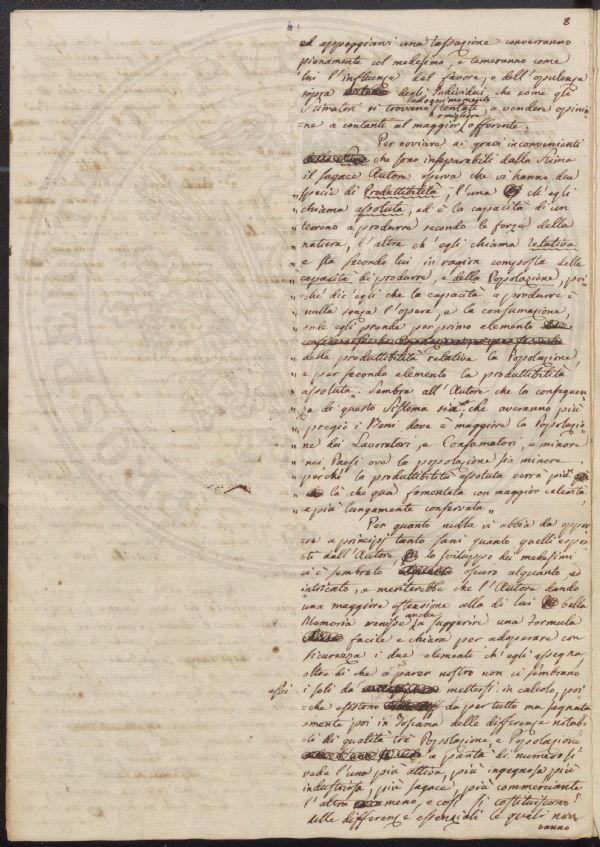 8
ed appoggiarvi una tassazione converranno
pienamente col medesimo, e temeranno come
lui l'influenza del favore, e dell'opulenza
sopra degli Individui, che come gli
ad ogni momento
Stimatori si trovano tentati a vendere opinio-
e migliore
=ne a contanti al maggior offerente.
Per ovviare ai gravi inconvenienti
che sono inseparabili dalla Stima
il sagace Autore osserva che vi hanno due
„ specie di Produttibilità, l'una ch'egli
„ chiama assoluta, ed è la capacità di un
„ terreno a produrre secondo le forze della
„ natura, l'altra ch'egli chiama relativa
„ e sta secondo lui in ragion composta della
„ capacità di produrre, e della Popolazione, poi
„ chè dic'egli che la capacità a produrre è
„ nulla senza l'opera, e la consumazione,
„ onde egli prende per primo elemento
„ della produttibilità relativa la Popolazione,
„ e per secondo elemento la produttibilità
„ assoluta. Sembra all'Autore che la conseguen
„ za di questo Sistema sia, che averanno più
„ pregio i Beni dove è maggiore la Popolazio
„ ne dei Lavoratori, e Consumatori, e minore
„ nei Paesi ove la popolazione sia minore
„ perchè la produttibilità assoluta verrà più
„ là che quà fomentata con maggior celerità
„ e più lungamente conservata „
Per quanto nulla vi abbia da oppor
=re a principj tanto sani quanto quelli espo=
=sti dall'Autore lo sviluppo dei medesimi
ci è sembrato oscuro alquanto ed
intricato, e meriterebbe che l'Autore dando
una maggiore estensione alla di lui bella
anche
Memoria venisse a suggerire una formula
facile e chiara per adoperare con
sicurezza i due elementi ch'egli assegna,
oltre di che a parer nostro non ci sembrano
essi
i soli da mettersi in calcolo, poi
=che esistono da per tutto ma segnata
=mente poi in Toscana delle differenze notabi
=li di qualità trà Popolazione, e Popolazione
a parità di numero si
vede l'una più attiva, più ingegnosa più
industriosa, più sagace, più commerciante
l'altra meno, e così si costituiscono
delle differenze essenziali le quali non
vanno